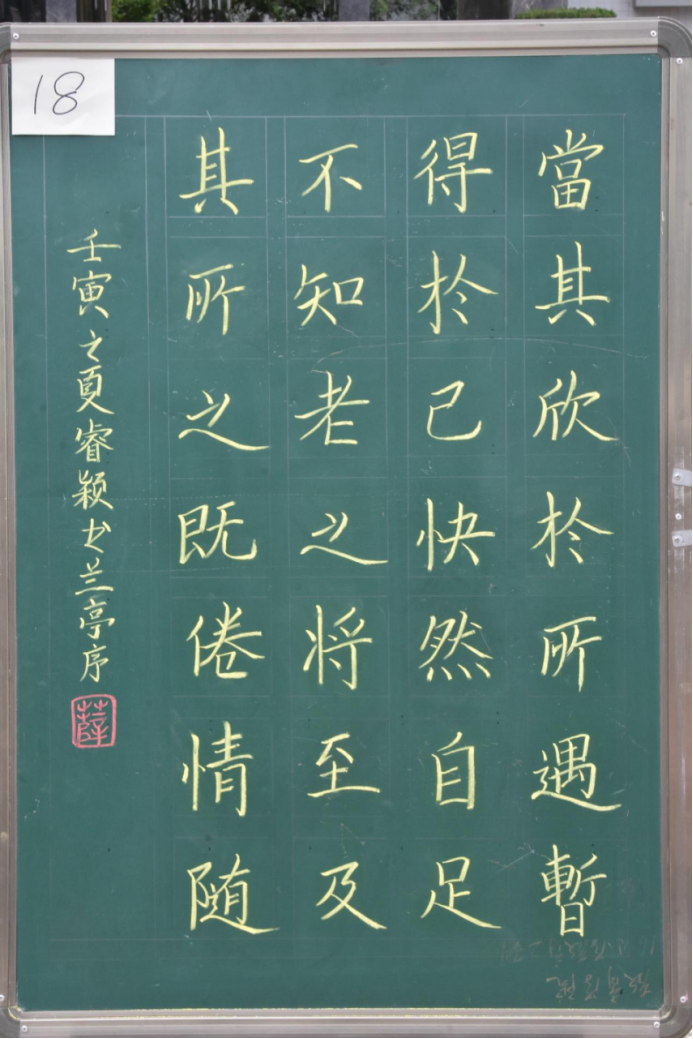 18
當其欣於所遇暫
得於己快然自足
不知老之將至及
其所之既倦情随
壬寅之夏睿颖书兰亭序
薛